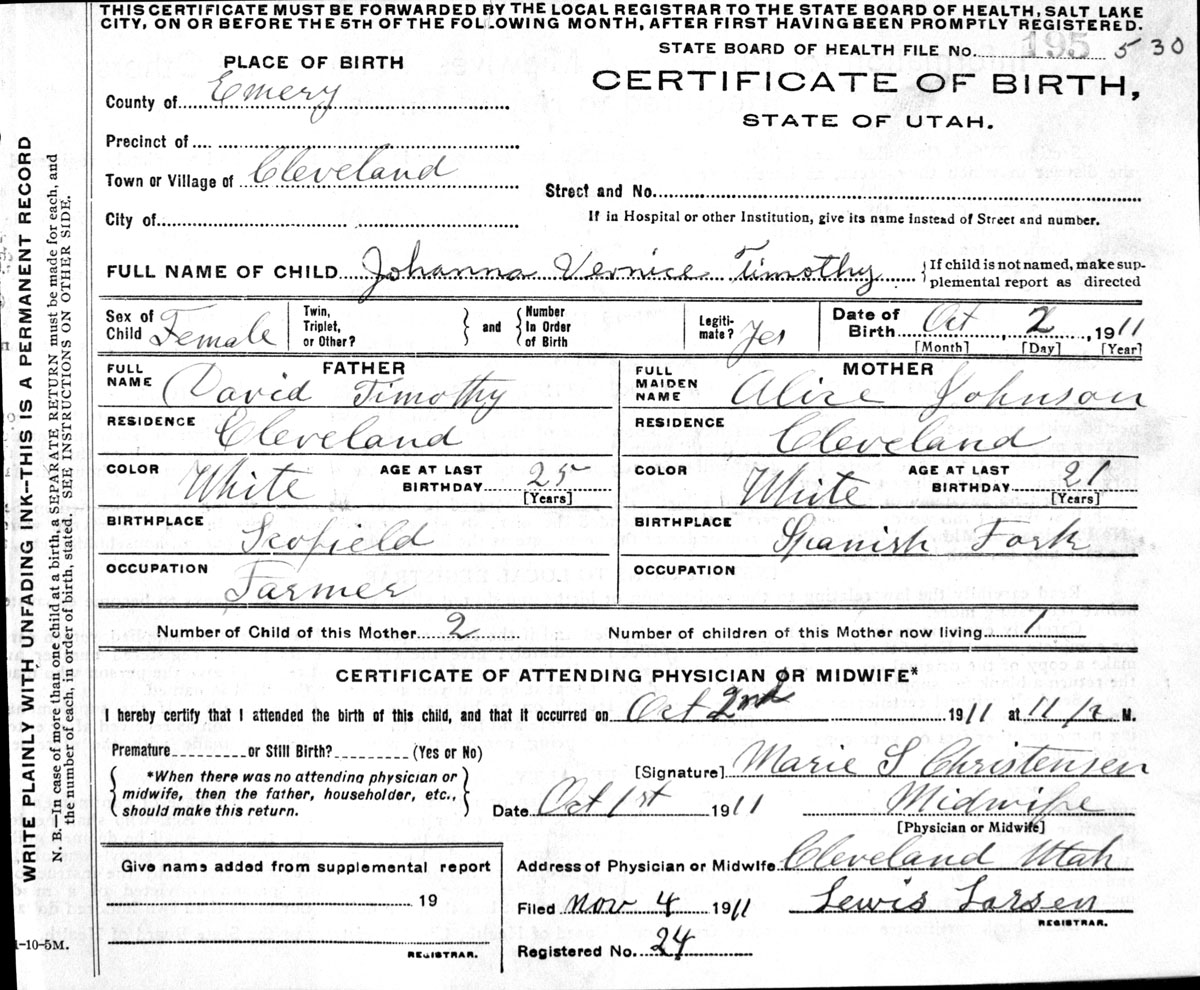 THIS CERTIFICATE MUST BE FORWARDED BY THE LOCAL REGISTRAR TO THE STATE BOARD OF HEALTH, SALT LAKE
CITY, ON OR BEFORE THE 5TH OF THE FOLLOWING MONTH, AFTER FIRST HAVING BEEN PROMPTLY REGISTERED.
STATE BOARD OF HEALTH FILE No. 195 530
PLACE OF BIRTH
CERTIFICATE OF BIRTH,
STATE OF UTAH.
County of Emery
Precinct of
Town or Village of Cleveland
Street and No.
City of
If in Hospital or other Institution, give its name instead of Street and number.
FULL NAME OF CHILD Johanna Vernice Timothy {If child is not named, make sup-
plemental report as directed
Sex of Child Female
Twin, Triplet, or Other? } and { Number In Order of Birth
Legiti-mate? Yes
Date of Birth Oct 2, 1911
[Month] [Day] [Year]
FATHER
FULL NAME David Timothy
RESIDENCE Cleveland
COLOR White AGE AT LAST BIRTHDAY 25
[Years]
BIRTHPLACE Scofield
OCCUPATION Farmer
MOTHER
FULL MAIDEN NAME Alice Johnson
RESIDENCE Cleveland
COLOR White AGE AT LAST BIRTHDAY 21
[Years]
BIRTHPLACE Spanish Fork
OCCUPATION
Number of Child of this Mother 2 Number of children of this Mother now living 1
CERTIFICATE OF ATTENDING PHYSICIAN OR MIDWIFE*
I hereby certify that I attended the birth of this child, and that it occurred on Oct 2nd 1911 at 11 1/2 M.
Premature or Still Birth? (Yes or No)
{ *When there was no attending physician or
midwife, then the father, householder, etc.,
should make this return. }
[Signature] Marie S Christensen
Date Oct 1st 1911 Midwife
[Physician or Midwife]
Given name added from supplemental report
19
REGISTRAR.
Address of Physician or Midwife Cleveland Utah
Filed Nov 4 1911 Lewis Larsen
REGISTRAR.
Registered No. 24
WRITE PLAINLY WITH UNFADING INK—THIS IS A PERMANENT RECORD
N. B.—In case of more than one child at a birth, a SEPARATE RETURN must be made for each, and
the number of each, in order of birth, stated. SEE INSTRUCTIONS ON OTHER SIDE.
1-10-5M.